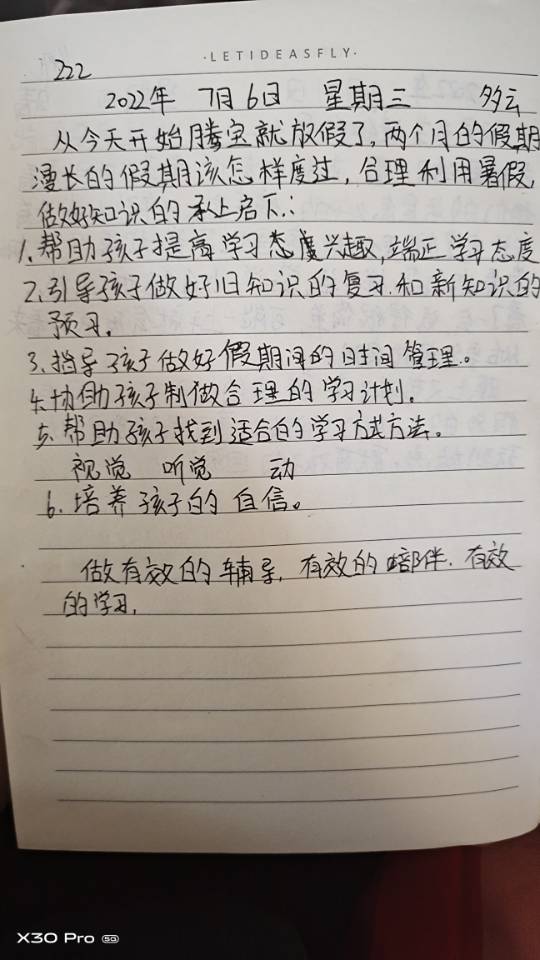 ·LETIDEASFLY·
222
2022年 7月6日 星期三 多云
从今天开始腾宝就放假了,两个月的假期
漫长的假期该怎样度过,合理利用暑假,
做好知识的承上启下:
1.帮助孩子提高学习态度兴趣,端正学习态度
2.引导孩子做好旧知识的复习.和新知识的
预习.
3.指导孩子做好假期间的时间管理。
4.协助孩子制做合理的学习计划.
5.帮助孩子找到适合的学习方式方法。
视觉 听觉 动
6.培养孩子的自信。
做有效的辅导,有效的陪伴.有效
的学习,
X30 Pro 5G